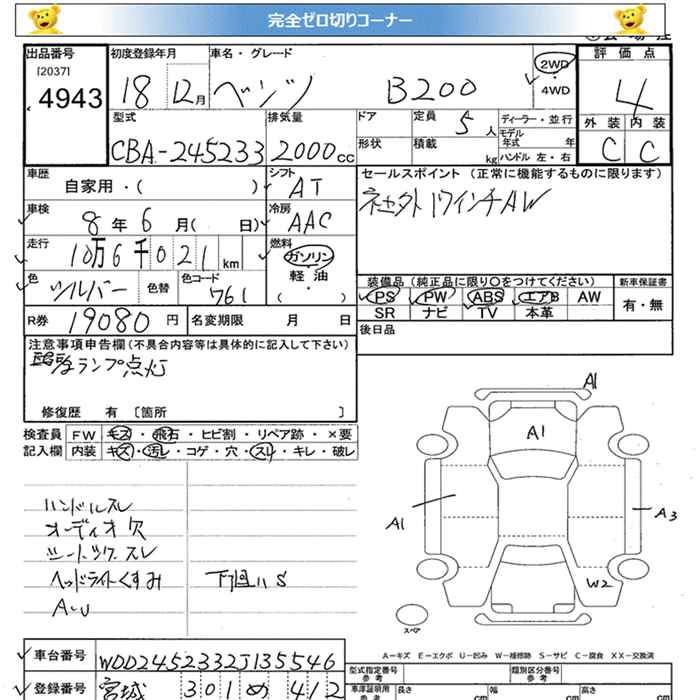 完全ゼロ切りコーナー
出品番号 初度登録年月 車名・グレード 評価点
[2037]
4943 18 12月 ベンツ B200 2WD・4WD 4
型式 排気量 ドア 定員 5人 ディーラー・並行 外装 内装
形状 積載 kg モデル年式 年
CBA-245233 2000cc ハンドル 左・右 C C
車歴 自家用・( ) シフト AT セールスポイント (正常に機能するものに限ります)
車検 8年6月( 日) 冷房 AAC 社外17インチAW
走行 10万6千021km 燃料 ガソリン・軽油・( )
色 シルバー 色替 色コード 761
装備品(純正品に限り〇をつけてください) 新車保証書
PS PW ABS エアB AW 有・無
SR ナビ TV 本革
R券 19080円 名変期限 月 日 後日品
注意事項申告欄(不具合内容等は具体的に記入して下さい)
ランプ点灯
修復歴 有 〔箇所 〕
検査員記入欄 FW キズ・飛石・ヒビ割・リペア跡・×要
内装 キズ・汚レ・コゲ・穴・スレ・キレ・破レ
A1
A1
A1
A3
W2
ハンドルスレ
オーディオ欠
シートシワ、スレ
ヘッドライトくすみ 下廻りS
A・U
スペア
A=キズ E=エクボ U=凹み W=補修跡 S=サビ C=腐食 XX=交換済
車台番号 WDD2452332J135546 型式指定番号 参考 類別区分番号 参考
登録番号 宮城 301 め 412 車庫証明用 参考 長さ 幅 高さ